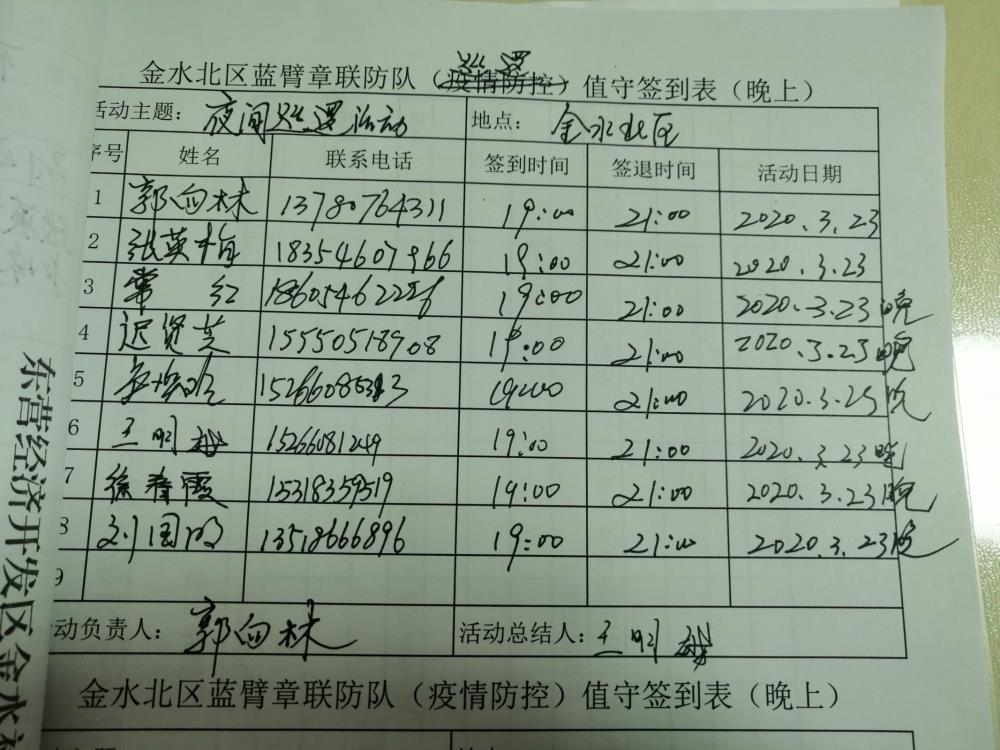 金水北区蓝臂章联防队（疫情防控）值守签到表（晚上）
巡逻
活动主题： 夜间巡逻活动 地点： 金水北区
序号 姓名 联系电话 签到时间 签退时间 活动日期
1 郭向林 13780764311 19:00 21:00 2020.3.23
2 张英梅 18354607966 19:00 21:00 2020.3.23
3 常红 19:00 21:00 2020.3.23晚
4 迟贤芝 15550518908 19:00 21:00 2020.3.23晚
5 19:00 21:00 2020.3.23晚
6 王明 15266081249 19:00 21:00 2020.3.23晚
7 徐春霞 15318359519 19:00 21:00 2020.3.23晚
8 刘国明 13518666896 19:00 21:00 2020.3.23晚
9
活动负责人： 郭向林 活动总结人： 王明
金水北区蓝臂章联防队（疫情防控）值守签到表（晚上）
东营经济开发区金水